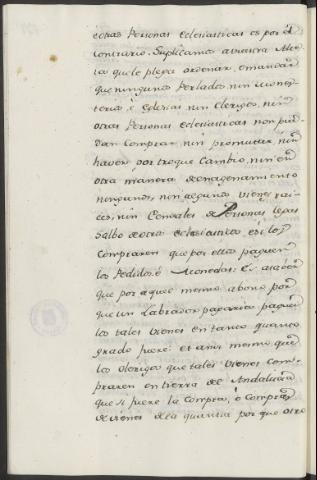 otras Personas Eclesiasticas es por el
contrario. Suplicamos a vuestra Alte
za que le plega ordenar, e mandar
que ningunos Perlados, nin Mones
terios, è Eglesias, nin Clerigos, nin
otras Personas Eclesiasticas non pue
dan Comprar, nin promutar, nin
haver por troque Cambio, nin en
otra manera de enagenamiento
ningunos, non algunos vienes rai
ces, nin Censales de Personas legas
Salbo de otros Eclesiasticos, è si los
Compraren que por ellos paguen
los Pedidos, è Monedas: Es a saber
que por aquel mesmo abono por
que un Labrador pagaria paguen
los tales vienes en tanto quanto
grado fuere: et ansi mesmo que
los clerigos que tales vienes com
praren en tierra de Andalucia
que si fuere la Compra, ò Compras
de vienes de la quantia por que otro